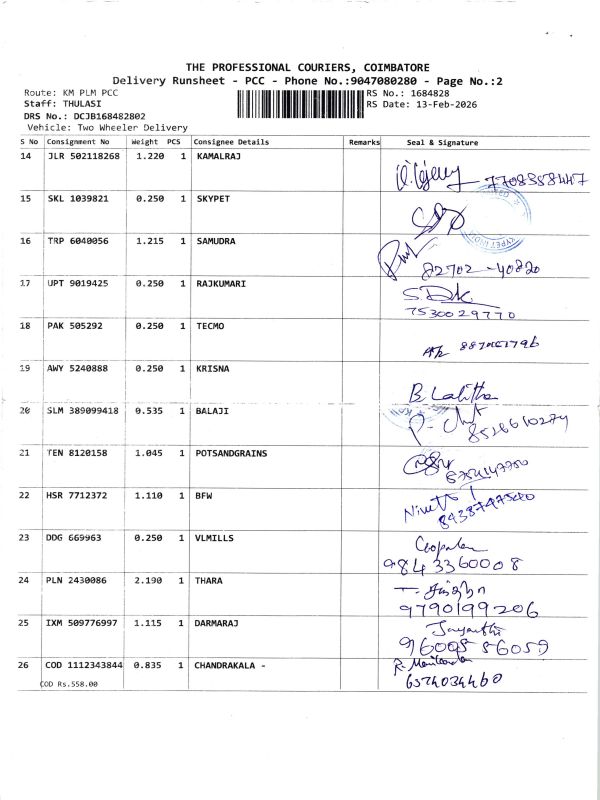 THE PROFESSIONAL COURIERS, COIMBATORE
Delivery Runsheet - PCC - Phone No.:9047080280 - Page No.:2
Route: KM PLM PCC RS No.: 1684828
Staff: THULASI RS Date: 13-Feb-2026
DRS No.: DCJB168482802
Vehicle: Two Wheeler Delivery
S No Consignment No Weight PCS Consignee Details Remarks Seal & Signature
14 JLR 502118268 1.220 1 KAMALRAJ
7708358447
15 SKL 1039821 0.250 1 SKYPET
16 TRP 6040056 1.215 1 SAMUDRA
82702-40820
17 UPT 9019425 0.250 1 RAJKUMARI
7530029770
18 PAK 505292 0.250 1 TECMO
19 AWY 5240888 0.250 1 KRISNA
B. Lalitha
20 SLM 389099418 0.535 1 BALAJI
8526610274
21 TEN 8120158 1.045 1 POTSANDGRAINS
22 HSR 7712372 1.110 1 BFW
23 DDG 669963 0.250 1 VLMILLS
Gopalan
9843360008
24 PLN 2430086 2.190 1 THARA
9790199206
25 IXM 509776997 1.115 1 DARMARAJ
Jayanthi
26 COD 1112343844 0.835 1 CHANDRAKALA -
R. Manikandan
6374034460
COD Rs.558.00